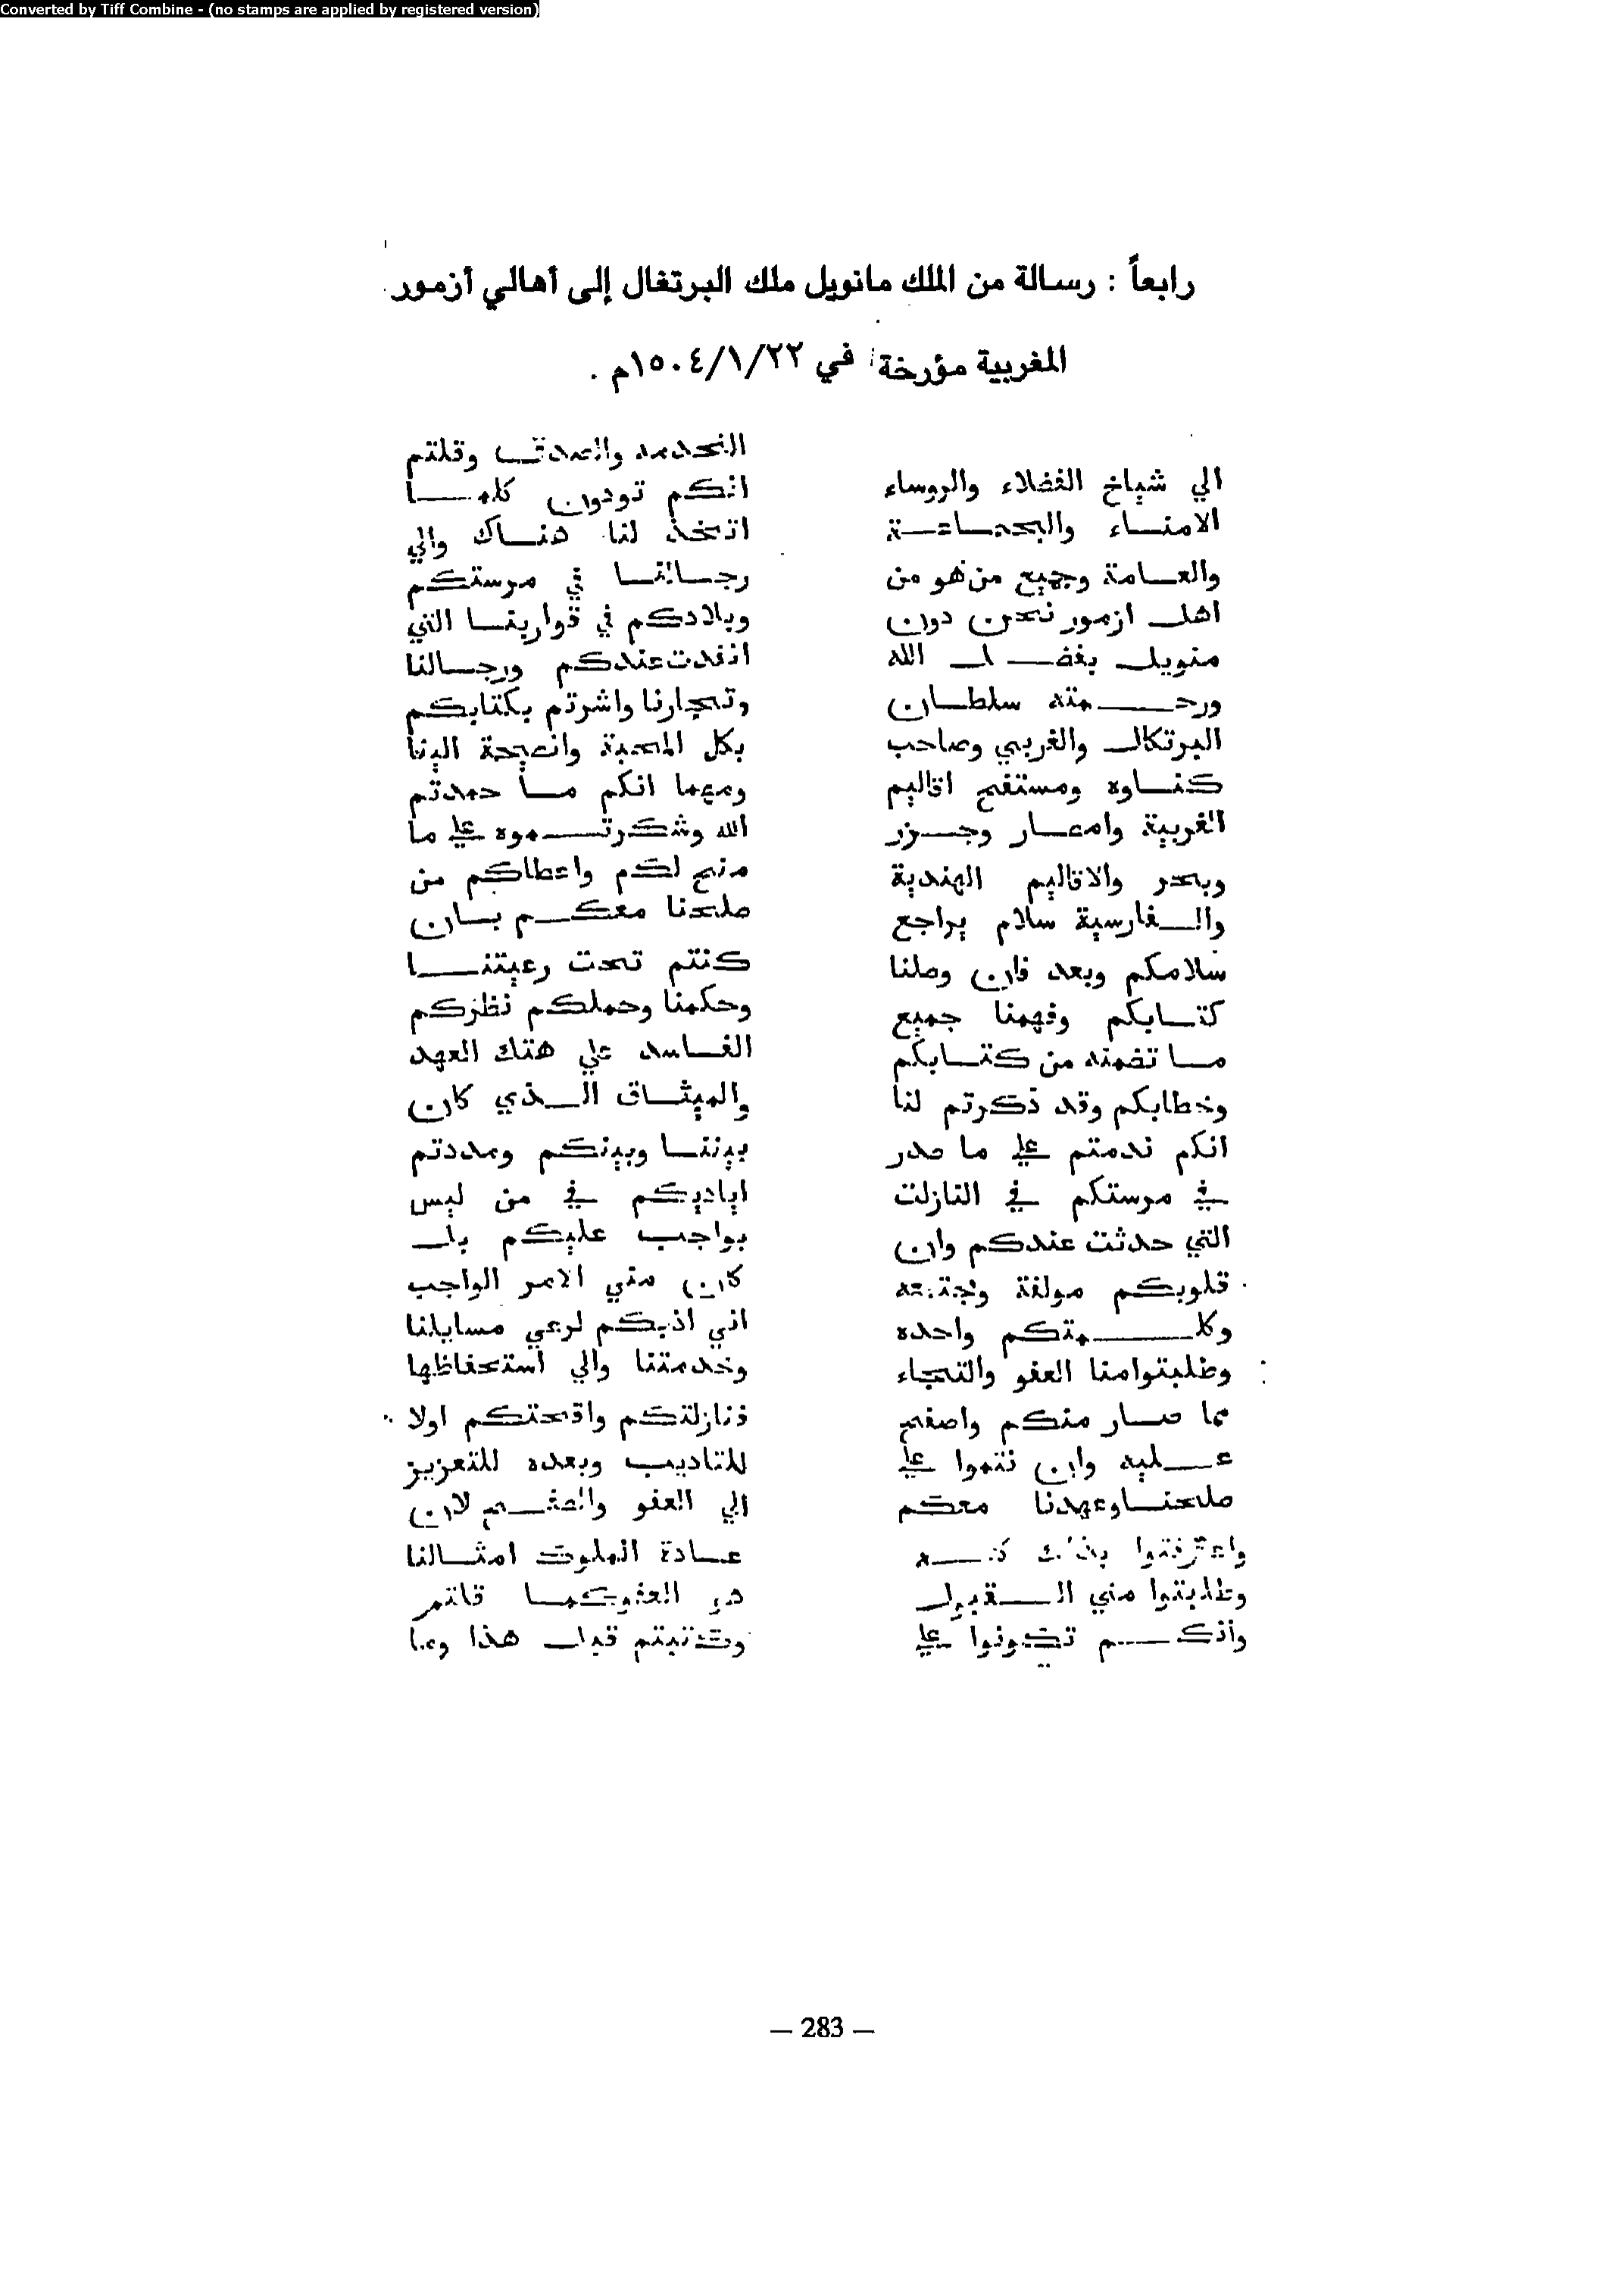 Converted by Tiff Combine - (no stamps are applied by registered version)
رابعاً : رسالة من الملك مانويل ملك البرتغال إلى أهالي أزمور
المغربية مؤرخة في ١٥٠٤/١/٢٢م .
الي شياخ الفضلاء والروساء
الامنـــاء والجمـــاعـــة
والعـــامة وجميع من هو من
اهل ازمور نحن دون
منويل بفضـــل الله
ورحـــمته سلطـــان
البرتكال والغربي وصاحب
كنـــاوه ومستفتح اقاليم
الغربية وامصـــار وجـــزر
وبحر والاقاليم الهندية
والـــفارسية سلام يراجع
سلامكم وبعد فان وصلنا
كتـــابكم وفهمنا جميع
مـــا تضمنه من كتـــابكم
وخطابكم وقد ذكرتم لنا
انكم ندمتم على ما صدر
في مرستكم في النازلت
التي حدثت عندكم وان
قلوبكم مولفة
وكلـــمتكم واحده
وطلبتوا منا العفو والتجاء
مما صـــار منكم واصفح
عـــليه وان نتموا على
صلحنـــا وعهدنا معكم
واعترفتوا
وطلبتوا مني الـــقبول
وانكـــم تكونوا على
الخدمه والصدق وقلتم
انكم تودون كلمـــا
اتخذ لنا هنـــاك والي
رجـــالنـــا في مرستكم
وبلادكم في قواربنـــا التي
انفدت عندكم ورجـــالنا
وتجارنا واشرتم بكتابكم
بكل المحبة والنصيحة الينا
ومهما انكم مـــا حمدتم
الله وشكرتـــموه على ما
منح لكم واعطاكم من
صلحنا معكـــم بـــان
كنتم تحت رعيتنـــا
وحكمنا وحملكم نظركم
الفـــاسد علي هتك العهد
والميثـــاق الـــذي كان
بيننـــا وبينكم ومددتم
اياديكم في من ليس
بواجب عليكم بل
كان مني الامر الواجب
اني لرعي مسايلنا
وخدمتنا والي استحفاظها
فنازلتكم اولا
للتاديب وبعده للتعزيز
الي العفو والصفـــح لان
عـــادة الملوك امثـــالنا
هو العفو كمـــا قلتم
وكتبتم قبل هذا وما
— 283 —